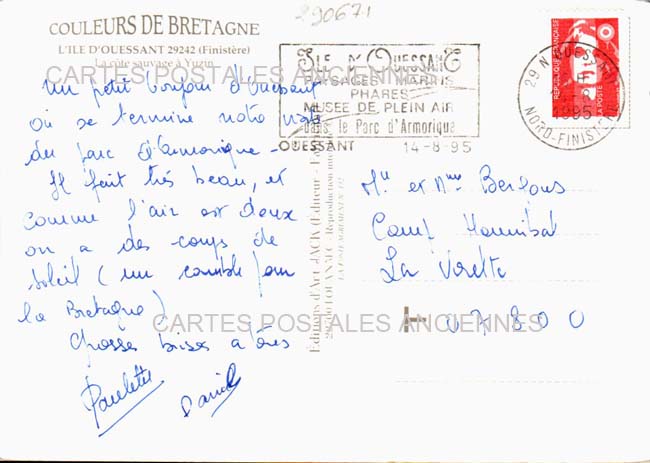 290671
COULEURS DE BRETAGNE
L'ILE D'OUESSANT 29242 (Finistère)
La côte sauvage à Yuzin
CARTES POSTALES ANCIENNES
Un petit bonjour d'Ouessant
où se termine notre visite
du parc d'armorique -
Il fait très beau, et
comme l'air est doux
on a des coups de
soleil (un comble pour
la Bretagne)
Grosses bises à tous
Paulette Daniel
Editions d'Art JACK (Editeur
29 LOUANNEC Reproduction
ILE D'OUESSANT
PAYSAGES MARINS
PHARES
MUSEE DE PLEIN AIR
dans le Parc d'Armorique
OUESSANT 14-8-95
REPUBLIQUE FRANÇAISE
LA POSTE
29 N OUESSANT
1995
NORD-FINISTERE
Mr et Mme
Camp Hannibal
La Voulte
07800
CARTES POSTALES ANCIENNES